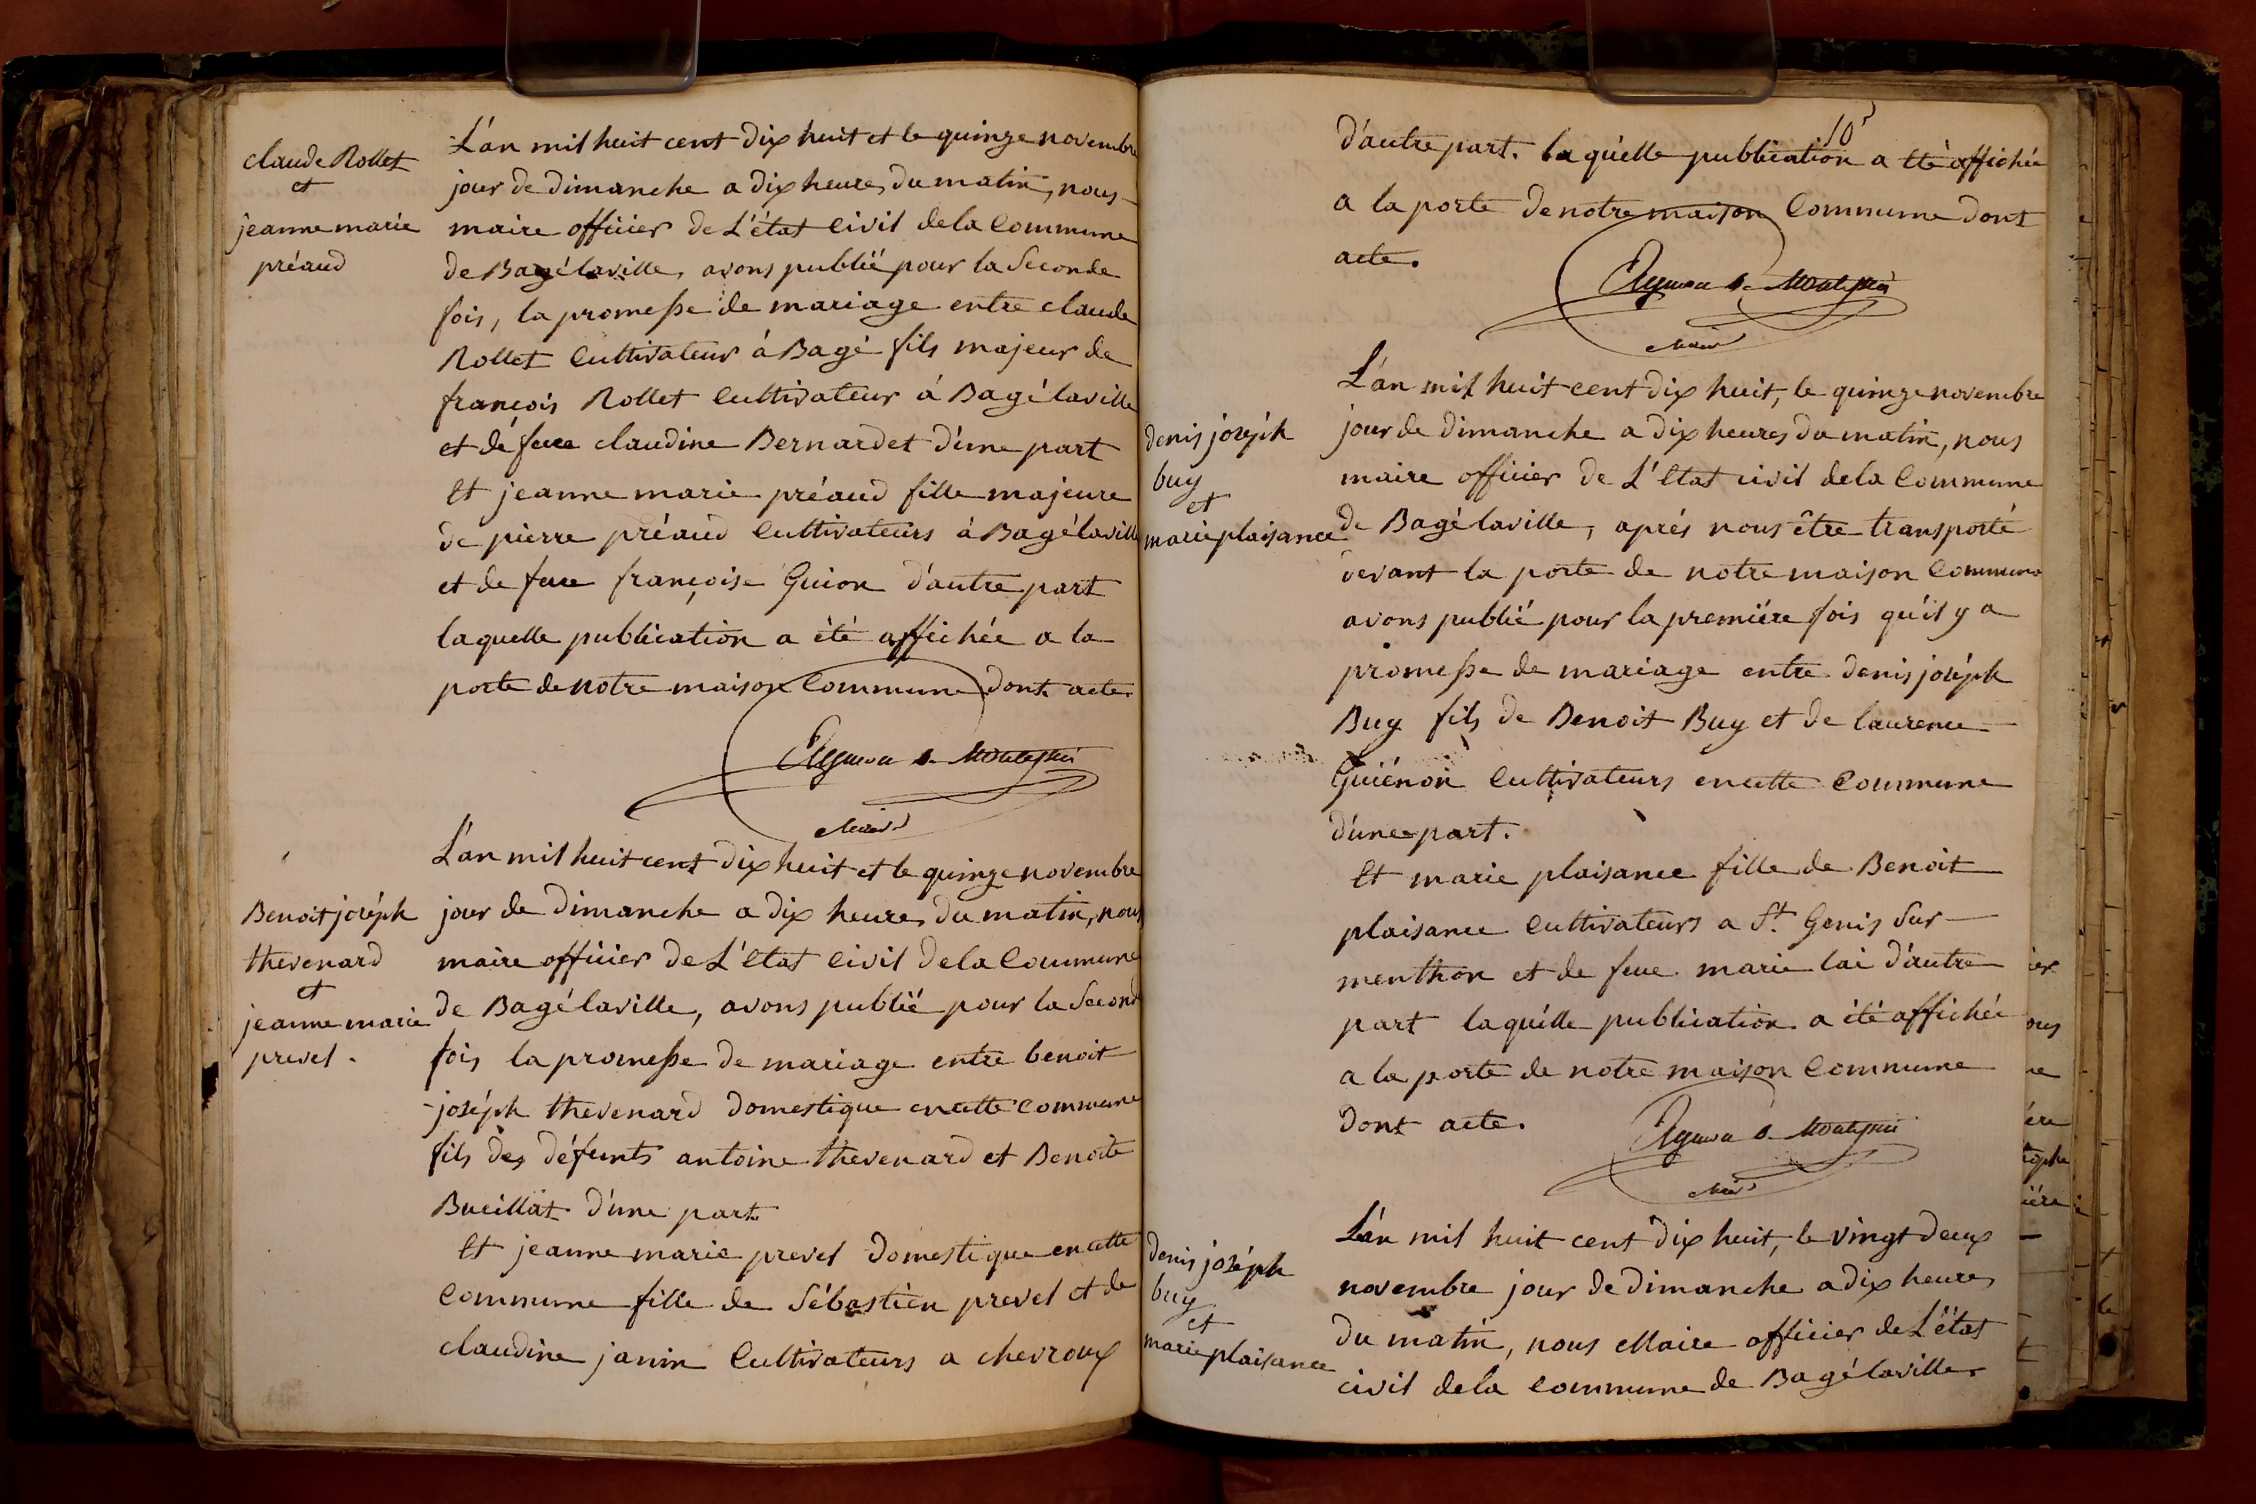 claude Rollet
et
jeanne marie
préaud
L'an mil huit cent dix huit et le quinze novembre
jour de dimanche a dix heures du matin, nous
maire officier de L'état civil dela Commune
de Bagélaville, avons publié pour la Seconde
fois, la promesse de mariage entre claude
Rollet Cultivateur á Bagé fils majeur de
françois Rollet Cultivateur á Bagélaville
et de feue claudine Bernardet d'une part
Et jeanne marie préaud fille majeure
de pierre préaud Cultivateurs á Bagélaville
et de feue françoise Guion d'autre part
laquelle publication a été affichée a la
porte de notre maison Commune dont acte.
Maire
Benoit joséph
thevenard
et
jeanne marie
prevel.
L'an mil huit cent dix huit et le quinze novembre
jour de dimanche a dix heures du matin, nous
maire officier de L'état Civil dela Commune
de Bagélaville, avons publié pour la Second
fois la promesse de mariage entre benoit
joséph thevenard domestique encette commune
fils des défunts antoine thevenard et Benoite
Bucillat d'une part
Et jeanne marie prevel domestique encette
Commune fille de Sébastien prevel et de
claudine janin Cultivateurs a chevroux
10
d'autre part. laquélle publication a été affichée
a la porte de notre maison Commune dont
acte.
Maire
denis joséph
buy
et
marie plaisance
L'an mil huit cent dix huit, le quinze novembre
jour de dimanche a dix heures du matin, nous
maire officier de L'Etat civil dela Commune
de Bagélaville, aprés nous être transporté
devant la porte de notre maison Commune
avons publié pour la premiére fois qu'il y a
promesse de mariage entre denis joséph
Buy fils de Benoit Buy et de laurence
Guiénon Cultivateurs encette Commune
d'une part.
Et marie plaisance fille de Benoit
plaisance Cultivateurs a St. Genis Sur
menthon et de feue marie lai d'autre
part laquélle publication a été affichée
a la porte de notre maison Commune
dont acte.
Maire
denis joséph
buy
et
marie plaisance
L'an mil huit cent dix huit, le vingt deux
novembre jour de dimanche a dix heures
du matin, nous Maire officier de L'état
civil dela Commune de Bagélaville